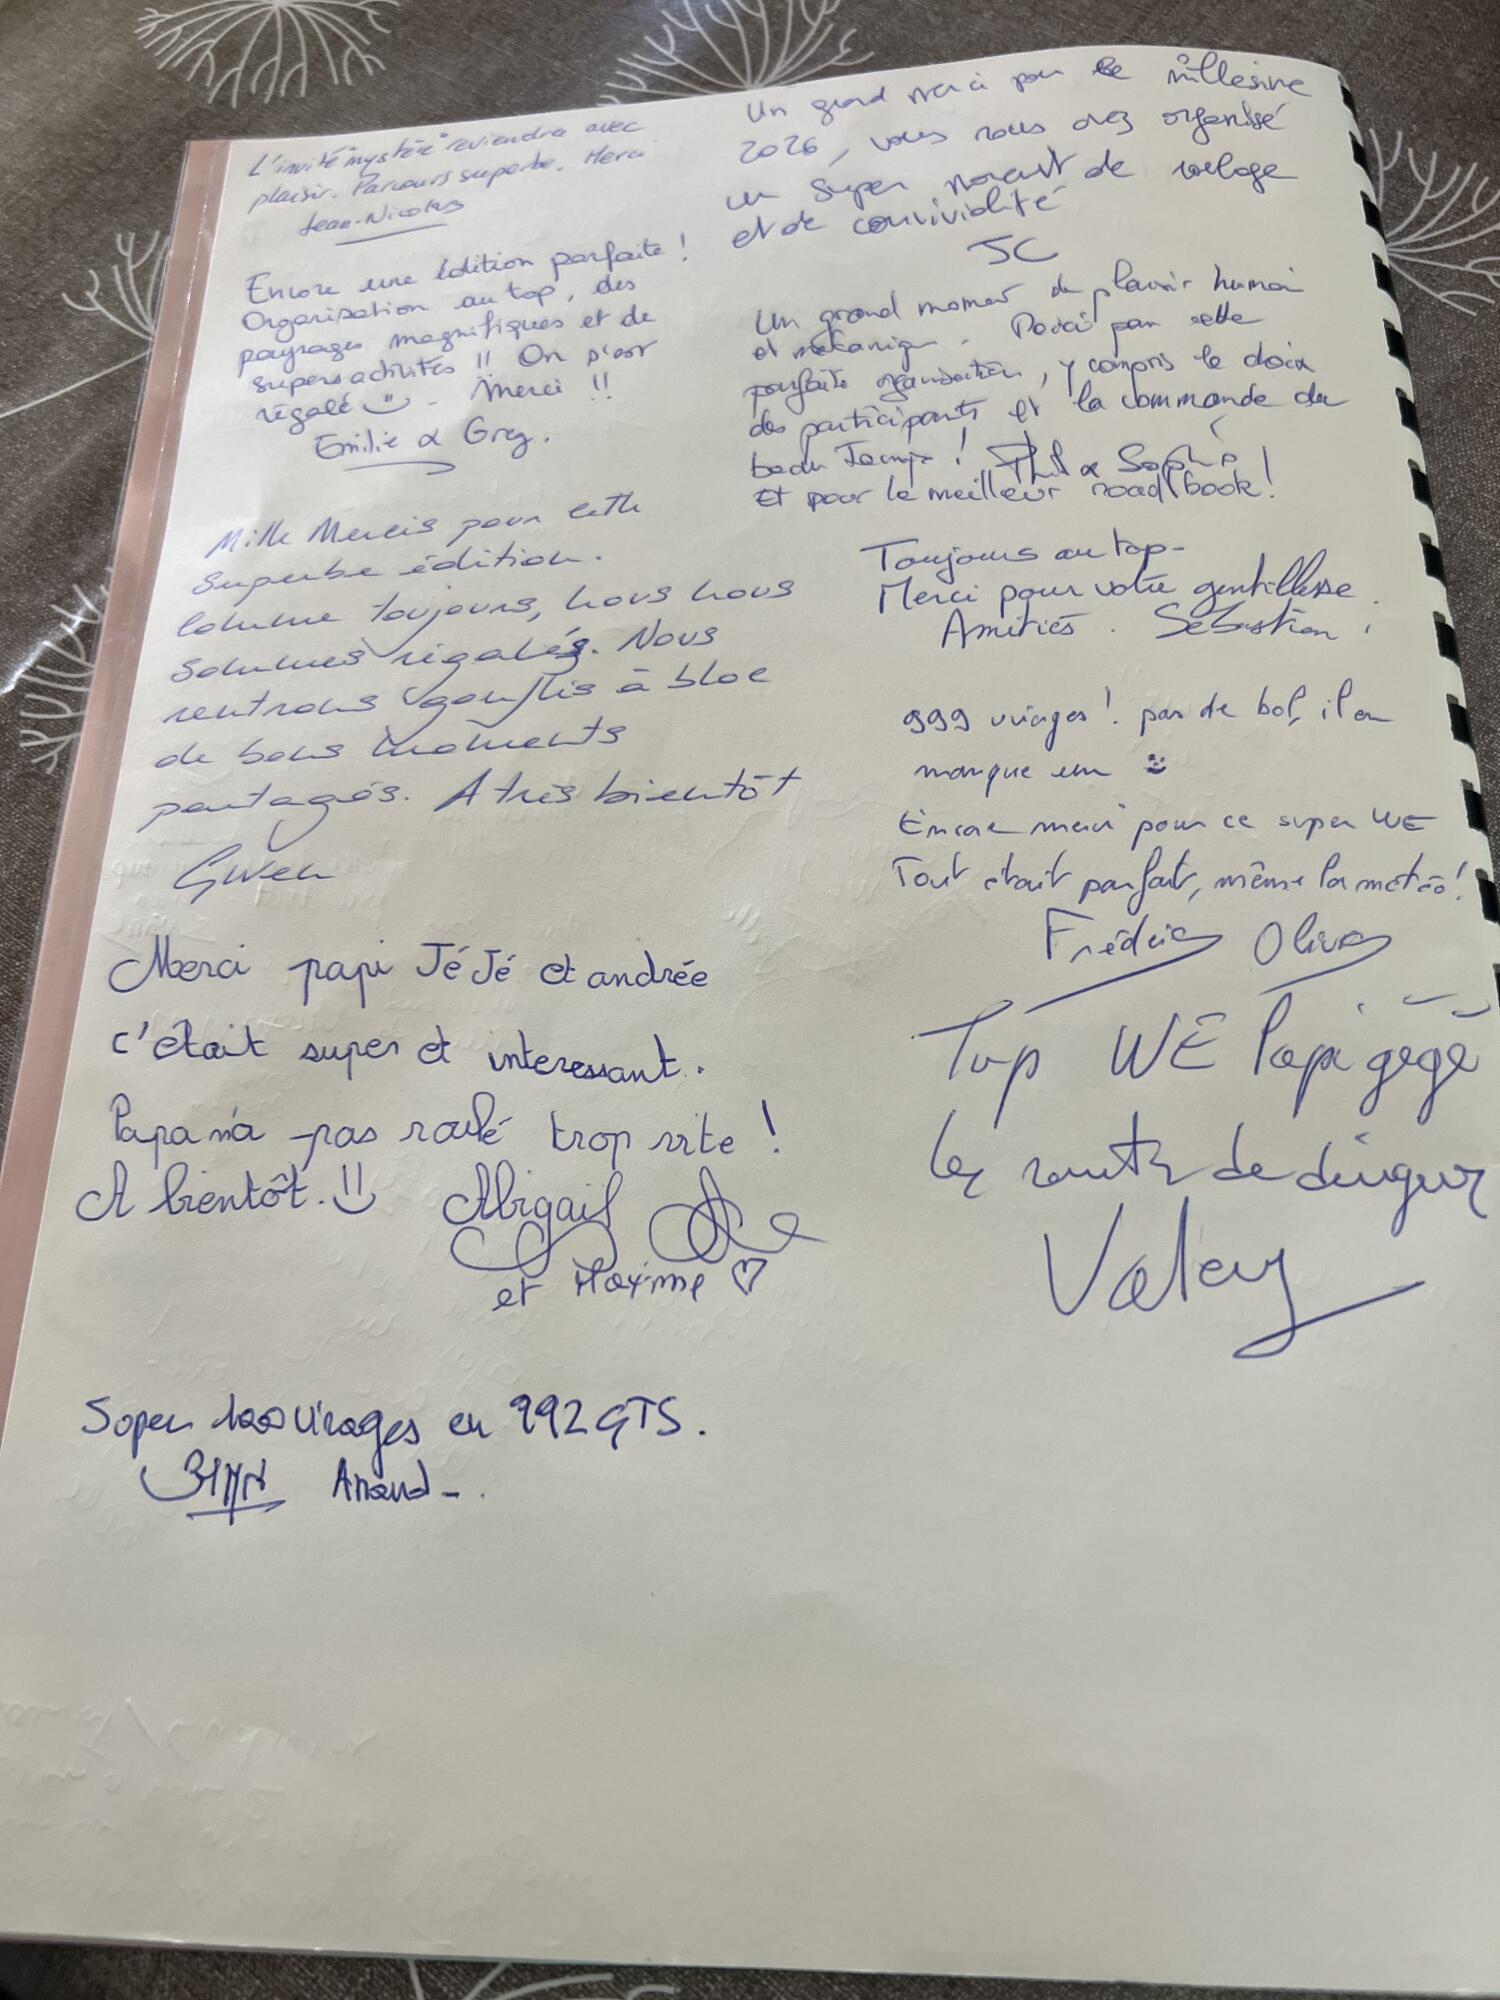 L'invité "mystère" reviendra avec
plaisir. Parcours superbe. Merci
Jean-Nicolas
Encore une édition parfaite !
Organisation au top, des
paysages magnifiques et de
supers activités !! On s'est
régalé . Merci !!
Emilie & Greg.
Mille Mercis pour cette
superbe édition.
Comme toujours, nous nous
sommes régalés. Nous
rentrons gonflés à bloc
de bons moments
partagés. A très bientôt
Gwen
Merci papi JéJé et andrée
c'était super et interessant.
Papa n'a pas roulé trop vite !
A bientôt. Abigail
et Maxime
Super 1000 virages en 992 GTS.
Arnaud
Un grand merci pour le millesime
2026, vous nous avez organisé
un super moment de roulage
et de convivialité
JC
Un grand moment de plaisir humain
et mécanique. Merci pour cette
parfaite organisation, y compris le choix
des participants et la commande du
beau Temps ! Phil & Sophie
Et pour le meilleur road book !
Toujours au top-
Merci pour votre gentillesse.
Amitiés. Sébastien.
999 virages ! pas de bol, il en
manque un
Encore merci pour ce super WE
Tout était parfait, même la météo !
Frédéric Olivier
Top WE Papi gégé
les routes de
Valery